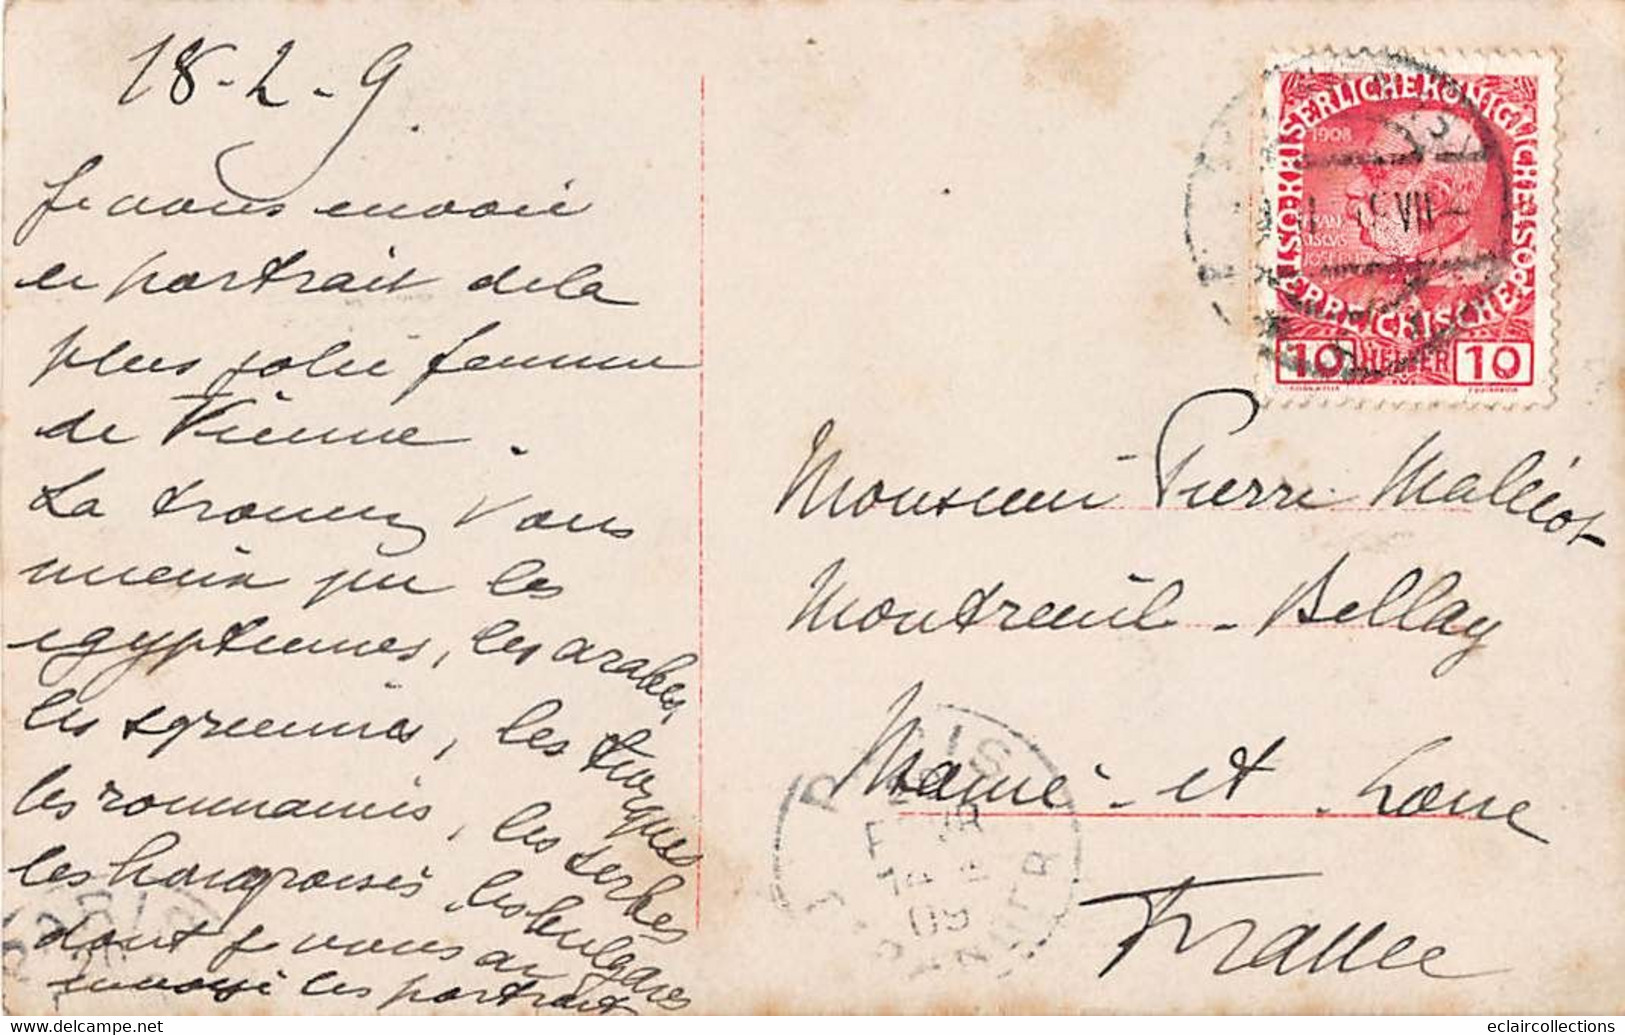 18-2-9.
Je vous envoie
le portrait de la
plus jolie femme
de Vienne.
La trouvez vous
mieux que les
egyptiennes, les arabes,
les syriennes, les turques
les roumaines, les serbes
les hongroises, les bulgares
dont je vous ai
envoyé les portrait
1908
KAISERLICHE KÖNIGLICHE
ÖSTERREICHISCHE POST
10 HELLER 10
Monsieur Pierre Malécot
Montreuil-Bellay
Maine-et-Loire
France
PARIS
09
eclaircollections @ www.delcampe.net